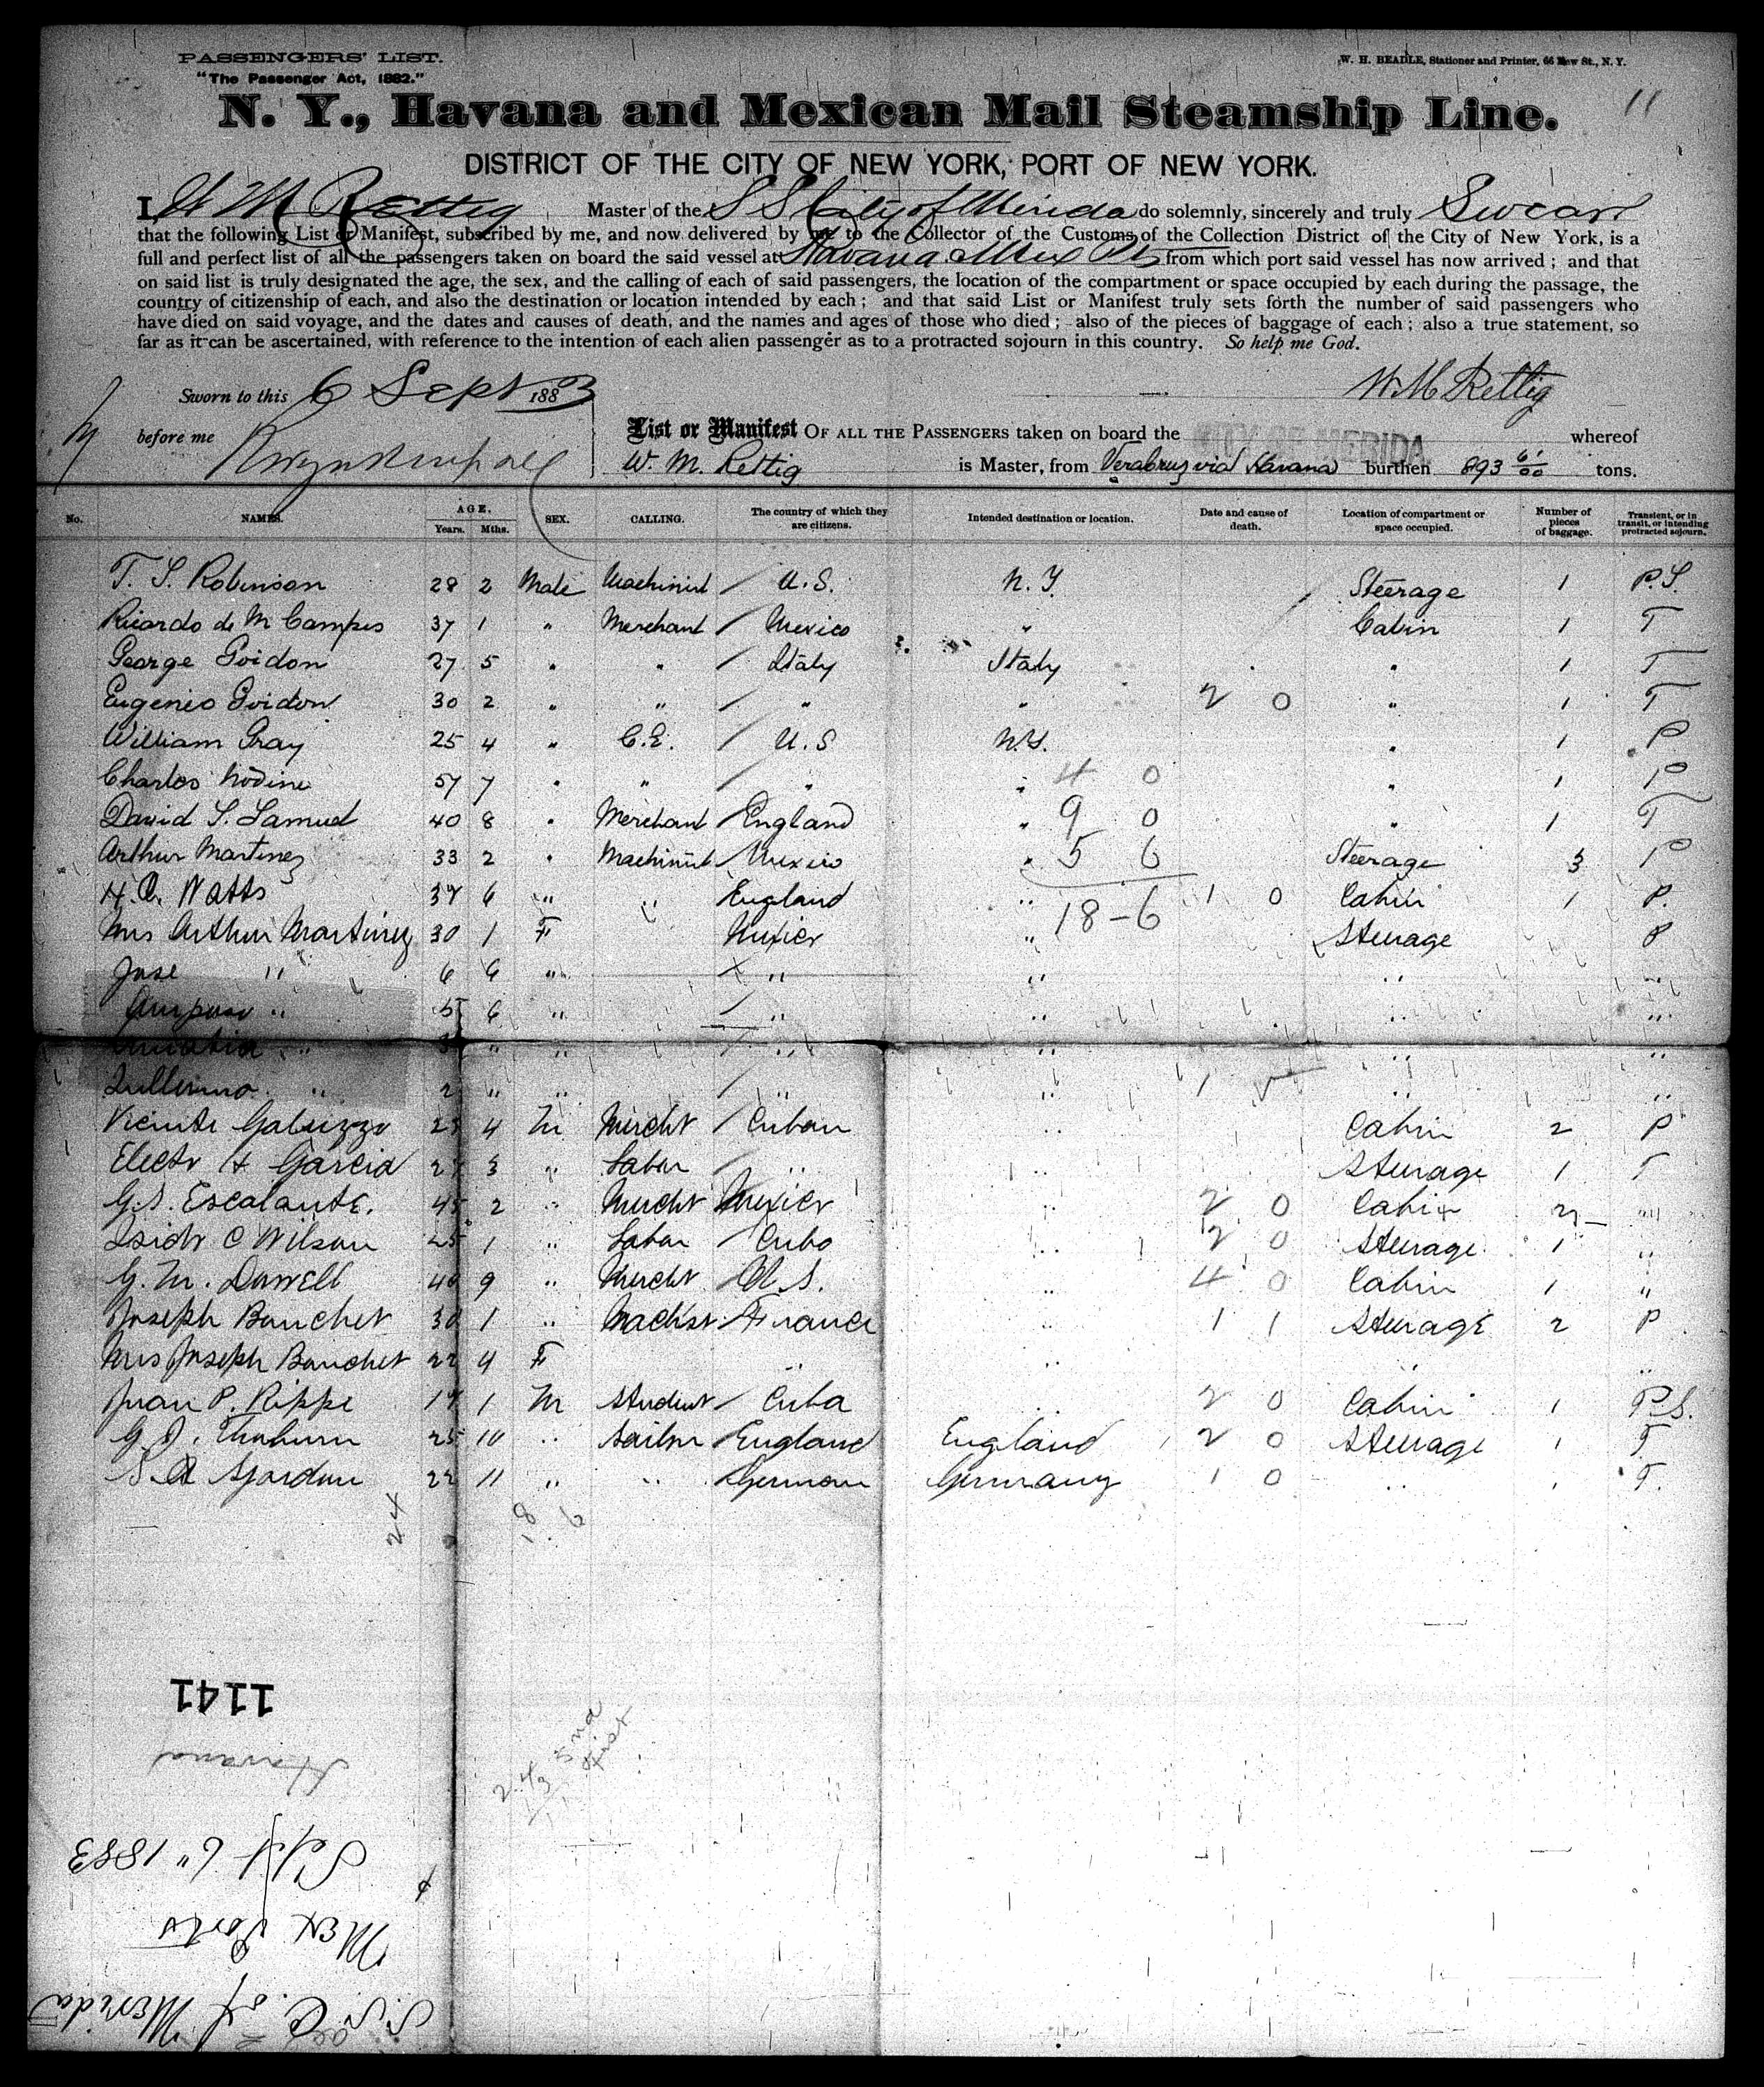 PASSENGERS' LIST.
"The Passenger Act, 1882."
W. H. BEADLE, Stationer and Printer, 66 New St., N. Y.
11
N. Y., Havana and Mexican Mail Steamship Line.
DISTRICT OF THE CITY OF NEW YORK, PORT OF NEW YORK.
I, W M Rettig Master of the S S City of Merida do solemnly, sincerely and truly Swear
that the following List or Manifest, subscribed by me, and now delivered by me to the Collector of the Customs of the Collection District of the City of New York, is a
full and perfect list of all the passengers taken on board the said vessel at Havana & Mex Pts from which port said vessel has now arrived; and that
on said list is truly designated the age, the sex, and the calling of each of said passengers, the location of the compartment or space occupied by each during the passage, the
country of citizenship of each, and also the destination or location intended by each; and that said List or Manifest truly sets forth the number of said passengers who
have died on said voyage, and the dates and causes of death, and the names and ages of those who died; also of the pieces of baggage of each; also a true statement, so
far as it can be ascertained, with reference to the intention of each alien passenger as to a protracted sojourn in this country. So help me God.
Sworn to this 6 Sept 1883 W. M Rettig
before me
List or Manifest OF ALL THE PASSENGERS taken on board the CITY OF MERIDA whereof
W. M. Rettig is Master, from Verabruz via Havana burthen 893 61/00 tons.
No. NAMES. AGE. Years. Mths. SEX. CALLING. The country of which they are citizens. Intended destination or location. Date and cause of death. Location of compartment or space occupied. Number of pieces of baggage. Transient, or in transit, or intending protracted sojourn.
T. S. Robinson 28 2 Male Machinist / U. S. N. Y. Steerage 1 P. S.
Ricardo de M Campos 37 1 " Merchant / Mexico " Cabin 1 T
George Goidon 27 5 " " / Italy Italy " 1 T
Eugenio Goidon 30 2 " " / " " 2 0 " 1 T
William Gray 25 4 " C. E. / U. S N.Y. " 1 P
Charles Nodine 57 7 " " / " " 4 0 " 1 P
David S. Samuel 40 8 " Merchant / England " 9 0 " 1 T
Arthur Martinez 33 2 " Machinist / Mexico " 5 6 Steerage 3 P
H. A. Watts 37 6 " " England " 18-6 1 0 Cabin 1 P.
Mrs Arthur Martinez 30 1 F Mexico " Steerage P
Jose " 6 6 " / " " " "
" 5 6 " / " " " "
3 " " / " " " "
2 " " / " " 1 " "
Vicente 4 M Mercht / Cuban " Cabin 2 P
Garcia 3 " Labor / " " Steerage 1 T
G. S. Escalante. 45 2 " Mercht Mexico " 2 0 Cabin 2 "
Isidr C Wilson 25 1 " Labor / Cuba " 2 0 Steerage 1 "
G. M. Dowell 40 9 " Mercht / U. S. " 4 0 Cabin 1 "
Joseph Bouchet 30 1 " Machist / France " 1 1 Steerage 2 P
Mrs Joseph Bouchet 22 4 F " " " "
Juan P. Rippe 1 M Student / Cuba " 2 0 Cabin 1 P. S.
25 10 " Sailor / England England 2 0 Steerage 1 T
Gordon 22 11 " " German Germany 1 0 " 1 T.
24
18 6
1141
Havana
2nd
first
Sept 6" 1883
Mex Ports
S. S. C. of Merida